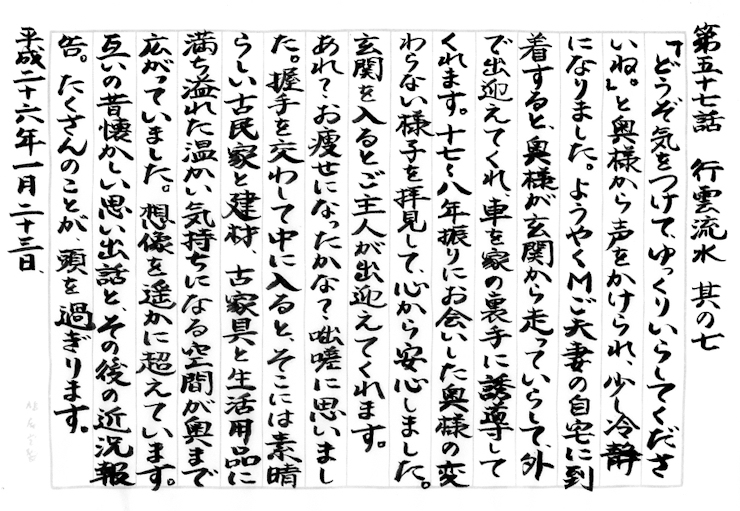 第五十七話　行雲流水　其の七
「どうぞ気をつけて、ゆっくりいらしてくださ
いね。」と奥様から声をかけられ、少し冷静
になりました。ようやくMご夫妻の自宅に到
着すると、奥様が玄関から走っていらして、外
で出迎えてくれ、車を家の裏手に誘導して
くれます。十七～八年振りにお会いした奥様の変
わらない様子を拝見して、心から安心しました。
玄関を入るとご主人が出迎えてくれます。
あれ？お痩せになったかな？咄嗟に思いまし
た。握手を交わして中に入ると、そこには素晴
らしい古民家と建材、古家具と生活用品に
満ち溢れた温かい気持ちになる空間が奥まで
広がっていました。想像を遥かに超えています。
互いの昔懐かしい思い出話と、その後の近況報
告。たくさんのことが、頭を過ぎります。
平成二十六年一月二十三日、